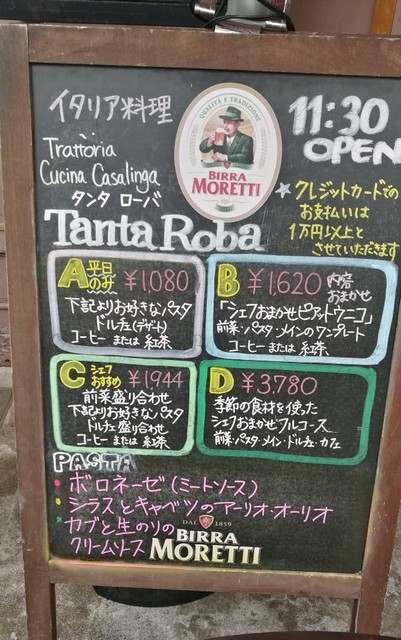 イタリア料理
QUALITÀ E TRADIZIONE
BIRRA
MORETTI
11:30
OPEN
Trattòria
Cucina Casalinga
タンタ ローバ
Tanta Roba
★クレジットカードでの
お支払いは
1万円以上と
させていただきます
A 平日のみ ¥1,080
下記よりお好きなパスタ
ドルチェ(デザート)
コーヒー または 紅茶
B ¥1,620 内容おまかせ
「シェフおまかせピアットウニコ」
前菜・パスタ・メインのワンプレート
コーヒー または 紅茶
C シェフおすすめ ¥1,944
前菜盛り合わせ
下記よりお好きなパスタ
ドルチェ盛り合わせ
コーヒー または 紅茶
D ¥3,780
季節の食材を使った
シェフおまかせフルコース
前菜・パスタ・メイン・ドルチェ・カフェ
PASTA
・ボロネーゼ(ミートソース)
・シラスとキャベツのアーリオ・オーリオ
・カブと生のりの
クリームソース
DAL 1859
BIRRA
MORETTI